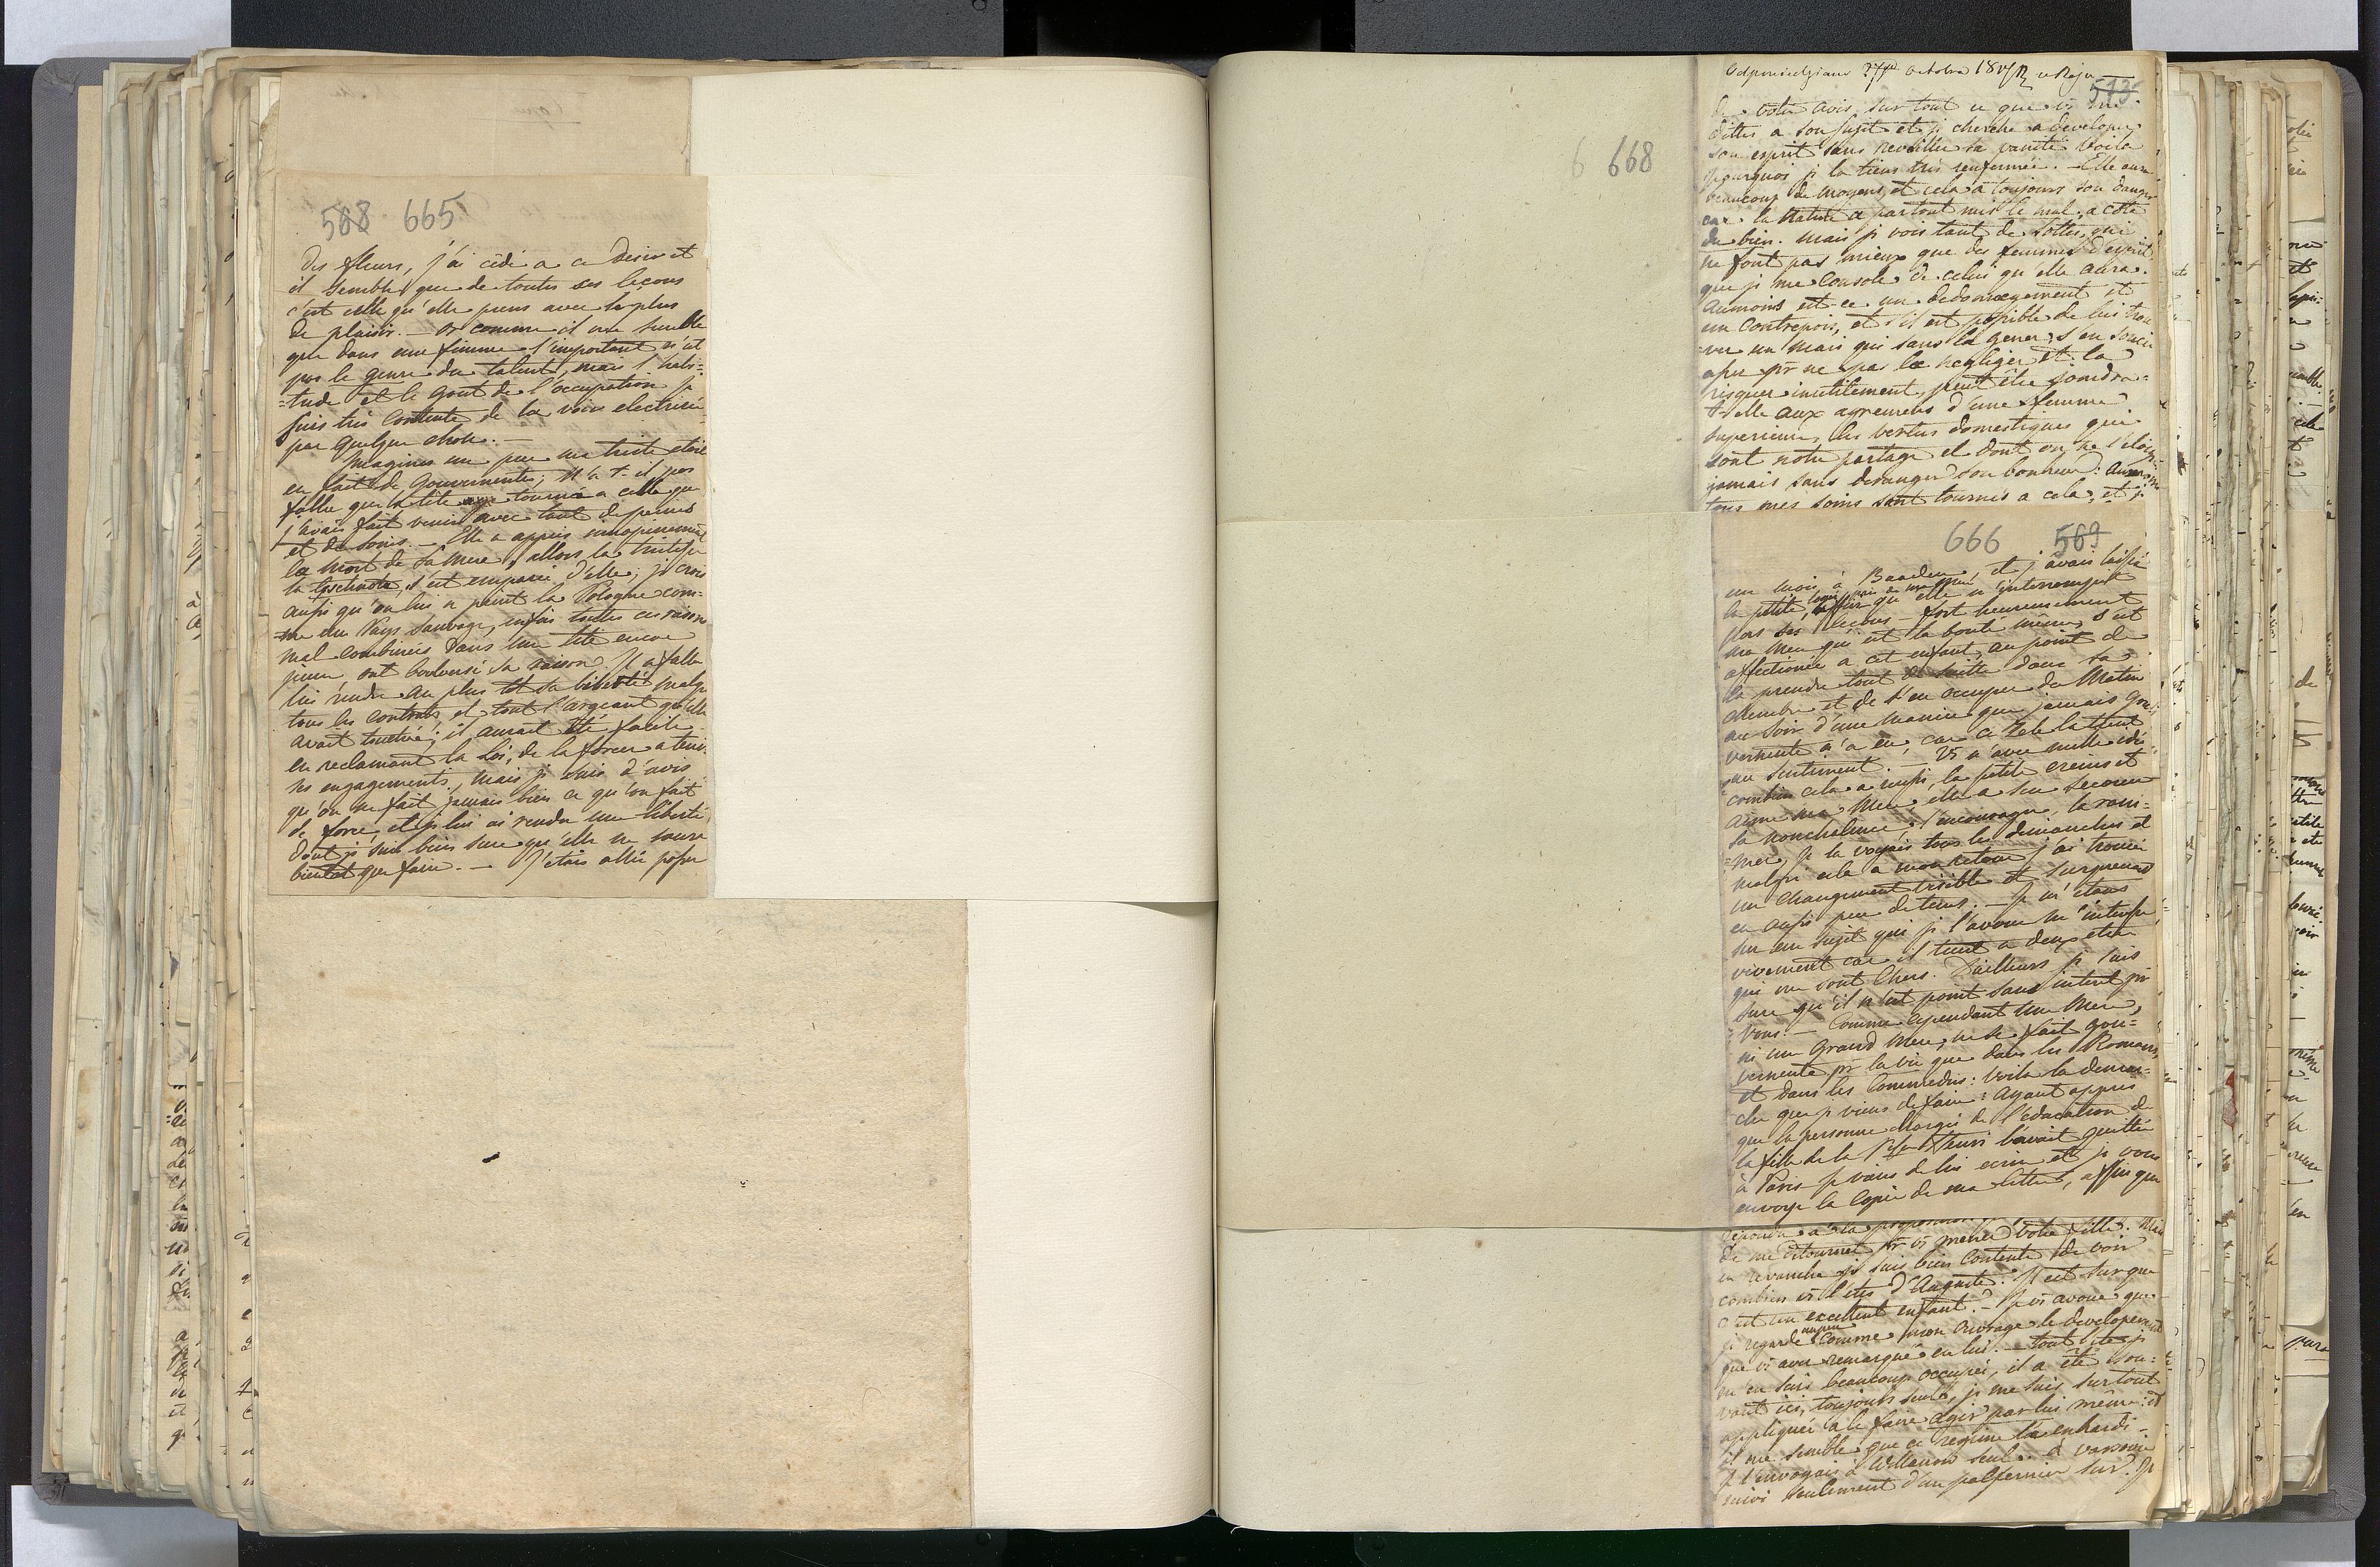 568 665
des fleurs, j'ai cédé a ce desir et
il semble que de toutes ses leçons
c'est celle qu'elle prens avec le plus
de plaisir. — or comme il me semble
que dans une femme l'important n'est
pas le genre du talent, mais l'habi=
=tude et le gout de l'occupation je
suis tres contente de la voir electrisée
par quelque chose. —
Imaginez un peu ma triste etoile
en fait de Gouvernantes, N'a-t-il pas
fallu que la tête tournée a celle que
j'avais fait venir avec tant de peines
et de soins. — Elle a appris inopinement
la mort de sa mere, allors la tristesse
la s'est emparée d'elle; je crois
aussi qu'on lui a peint la Pologne com=
=me un Pays sauvage, enfin toutes ces raisons
mal combinées dans une tête encore
jeune, ont boulversé sa raison. Il a fallu
lui rendre au plus tot sa liberté malgré
tous les contrats, et tout l'argeant qu'elle
avait touché; il aurait été facile
en reclamant la Loi, de la forcer a tenir
ses engagements, mais je suis d'avis
qu'on ne fait jamais bien ce qu'on fait
de force, et je lui ai rendu une liberté
dont je suis bien sure qu'elle ne saura
bientot que faire. — J'etais allée passer
6 668
Octobre 18
573
de votre avis, sur tout ce que vs me
dittes a son sujet et je cherche a developer
son esprit sans reveiller sa vanité voila
pourquoi je la tiens très renfermée. — Elle aura
beaucoup de moyens, et cela a toujours son danger
car la Nature a partout mis le mal, a coté
du bien. mais je vois tant de sottes, qui
ne font pas mieux que des femmes d'esprit,
que je me console de celui qu'elle aura.
aumoins est-ce un dedomagement et
un contrepois, et s'il est possible de lui trou
=ver un mari qui sans la gener, s'en soucie
assez pr ne pas la negliger et la
risquer inutilement, peut être joindra=
t-elle aux agrements d'une femme
superieure, les vertus domestiques qui
sont notre partage et dont on ne s'éloigne
jamais sans deranger son bonheur: Aumoins
tous mes soins sont tournés a cela, et je
666 569
un mois à Baaden et j'avais laissé
la petite, affin qu'elle n'interrompit
pas ses leçons — fort heureusement
ma Mere qui est la bonté même, s'est
affectionée a cet enfant, au point de
la prendre tout de suitte dans sa
chambre et de s'en occuper du Matin
au soir d'une maniere que jamais gou=
vernante n'a eu, car a Zele la tient
au sentiment. — Vs n'avez nulle idée
combien cela a reussi, la petite creint et
aime ma Mere, elle a su secouer
sa nonchalence, l'encourager, la rani=
=mer, je la voyais tous les dimanches et
malgré cela a mon retour j'ai trouvé
un changement visible et surprenant
en aussi peu de tems. — Je m'étens
sur un sujet qui je l'avoue m'interesse
vivement car il tient a deux etres
qui me sont Chers. D'ailleurs je suis
sure qu'il n'est point sans interet pr
vous. — Comme cependant une Mere,
ni une Grand Mere, ne se fait gou=
vernante pr la vie que dans les Romans,
et dans les Commedies: voila la demar=
che que je viens de faire: ayant appris
que la personne chargée de l'éducation de
la fille de la l'avait quittée
à Paris je viens de lui ecrire et je vous
envoye la Copie de ma lettre, affin que
de me detourner pr vs mener votre fille. Mais
en revanche je suis bien contente de voir
combien vs l'êtes d'Auguste. Il est sur que
c'est un excellent enfant. — Je vs avoue que
je regarde un peu comme mon ouvrage le developement
que vs avez remarqué en lui. — tout l'été je
m'en suis beaucoup occupée, il a été sou=
vent ici, toujours seul, je me suis surtout
appliquée a le faire agir par lui même: et
il me semble que ce regime l'a enhardi —
Je l'envoyais à Willanow seul. à varsovie
suivi seulement d'un palfernier sur. Je